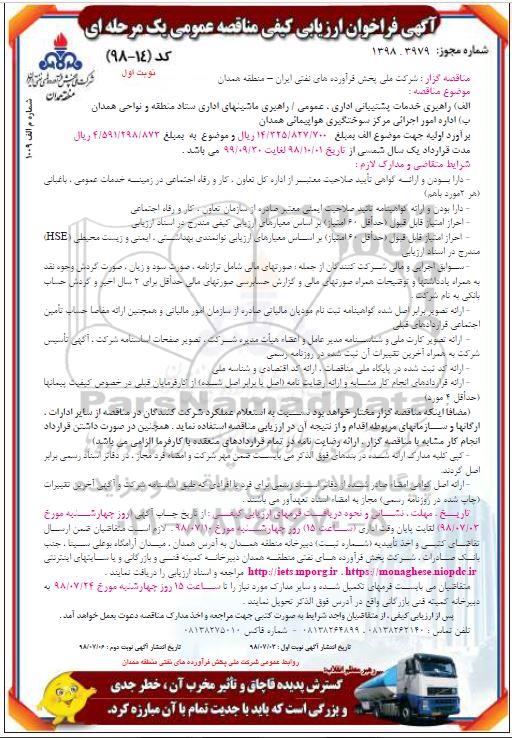 آگهی فراخوان ارزیابی کیفی مناقصه عمومی یک مرحله ای
کد (۱۴-۹۸)
شماره مجوز: ۳۹۷۹ . ۱۳۹۸
نوبت اول
شرکت ملی پخش فرآورده های نفتی ایران
منطقه همدان
شماره م الف ۱۰۰۹
مناقصه گزار : شرکت ملی پخش فرآورده های نفتی ایران – منطقه همدان
موضوع مناقصه :
الف) راهبری خدمات پشتیبانی اداری ، عمومی / راهبری ماشینهای اداری ستاد منطقه و نواحی همدان
ب) اداره امور اجرائی مرکز سوختگیری هواپیمائی همدان
برآورد اولیه جهت موضوع الف بمبلغ ۱۴/۳۲۵/۸۲۷/۷۰۰ ریال و موضوع ب بمبلغ ۴/۵۹۱/۲۹۸/۸۷۳ ریال
مدت قرارداد یک سال شمسی از تاریخ ۹۸/۱۰/۰۱ لغایت ۹۹/۰۹/۳۰ می باشد .
شرایط متقاضی و مدارک لازم :
- دارا بودن و ارائه گواهی تأیید صلاحیت معتبر از اداره کل تعاون ، کار و رفاه اجتماعی در زمینه خدمات عمومی ، باغبانی
(هر ۲مورد باهم)
- دارا بودن و ارائه گواهینامه تائید صلاحیت ایمنی معتبر صادره از سازمان تعاون ، کار و رفاه اجتماعی
- احراز امتیاز قابل قبول (حداقل ۶۰ امتیاز) بر اساس معیارهای ارزیابی کیفی مندرج در اسناد ارزیابی
- احراز امتیاز قابل قبول (حداقل ۶۰ امتیاز) بر اساس معیارهای ارزیابی توانمندی بهداشتی ، ایمنی و زیست محیطی (HSE)
مندرج در اسناد ارزیابی
- سوابق اجرایی و مالی شرکت کنندگان از جمله : صورتهای مالی شامل ترازنامه ، صورت سود و زیان ، صورت گردش وجوه نقد
به همراه یادداشتها و توضیحات همراه صورتهای مالی و گزارش حسابرسی صورتهای مالی حداقل برای ۲ سال اخیر و گردش حساب
بانکی به نام شرکت .
- ارائه تصویر برابر اصل شده گواهینامه ثبت نام مودیان مالیاتی صادره از سازمان امور مالیاتی و همچنین ارائه مفاصا حساب تأمین
اجتماعی قراردادهای قبلی
- ارائه تصویر کارت ملی و شناسنامه مدیر عامل و اعضاء هیأت مدیره شرکت ، تصویر صفحات اساسنامه شرکت ، آگهی تأسیس
شرکت به همراه آخرین تغییرات آن ثبت شده در روزنامه رسمی
- ارائه کد ثبت شده در پایگاه ملی مناقصات ، ارائه کد اقتصادی و شناسه ملی
- ارائه قراردادهای انجام کار مشابه و ارائه رضایت نامه (اصل یا برابر اصل شده) از کارفرمایان قبلی در خصوص کیفیت پیمانها
(حداقل ۴ مورد)
(مضافا اینکه مناقصه گزار مختار خواهد بود نسبت به استعلام عملکرد شرکت کنندگان در مناقصه از سایر ادارات ،
ارگانها و سازمانهای مربوطه اقدام و از نتیجه آن در ارزیابی مناقصه استفاده نماید . همچنین در صورت داشتن قرارداد
انجام کار مشابه با مناقصه گزار ، ارائه رضایت نامه در تمام قراردادهای منعقده با کارفرما الزامی می باشد)
- کپی کلیه مدارک ارائه شده در بندهای فوق الذکر می بایست ضمن مهر شرکت و امضاء فرد مجاز ، در دفاتر اسناد رسمی برابر
اصل گردند.
- ارائه اصل گواهی امضاء صادر شده از دفاتر اسناد رسمی برای فرد یا افرادی که طبق اساسنامه شرکت و آگهی آخرین تغییرات
(چاپ شده در روزنامه رسمی) مجاز به امضاء اسناد تعهدآور می باشند .
تاریخ ، مهلت ، نشانی و نحوه دریافت فرمهای ارزیابی کیفی : از تاریخ چاپ آگهی (روز چهارشنبه مورخ
۹۸/۰۷/۰۳) لغایت پایان وقت اداری (ساعت ۱۵) روز چهارشنبه مورخ ۹۸/۰۷/۱۰ . لازم است متقاضیان ضمن ارسال
تقاضای کتبی و اخذ تأییدیه (شماره ثبت) دبیرخانه منطقه همدان به آدرس همدان ، میدان آرامگاه بوعلی سینا ، جنب
بانک صادرات ، شرکت پخش فرآورده های نفتی منطقه همدان دبیرخانه کمیته فنی و بازرگانی و یا سایتهای اینترنتی
http://iets.mporg.ir . https://monaghese.niopdc.ir مراجعه و اسناد ارزیابی را دریافت نمایند .
متقاضیان می بایست فرمهای تکمیل شده و سایر مدارک مورد نیاز را تا ساعت ۱۵ روز چهارشنبه مورخ ۹۸/۰۷/۲۴ به
دبیرخانه کمیته فنی بازرگانی واقع در آدرس فوق الذکر تحویل نمایند .
پس از ارزیابی کیفی ، از متقاضیان واجد شرایط به صورت کتبی جهت مراجعه و اخذ مدارک مناقصه دعوت بعمل خواهد آمد .
تلفن تماس : ۰۸۱۳۸۲۶۲۱۴۰ - ۰۸۱۳۸۲۶۴۸۹۹ شماره فاکس ۰۸۱۳۸۲۷۵۰۱۰
تاریخ انتشار آگهی نوبت اول : ۹۸/۰۷/۰۳ تاریخ انتشار آگهی نوبت دوم : ۹۸/۰۷/۰۶
روابط عمومی شرکت ملی پخش فرآورده های نفتی منطقه همدان
رهبر معظم انقلاب:
گسترش پدیده قاچاق و تأثیر مخرب آن ، خطر جدی
و بزرگی است که باید با جدیت تمام با آن مبارزه کرد.
ParsNamadData